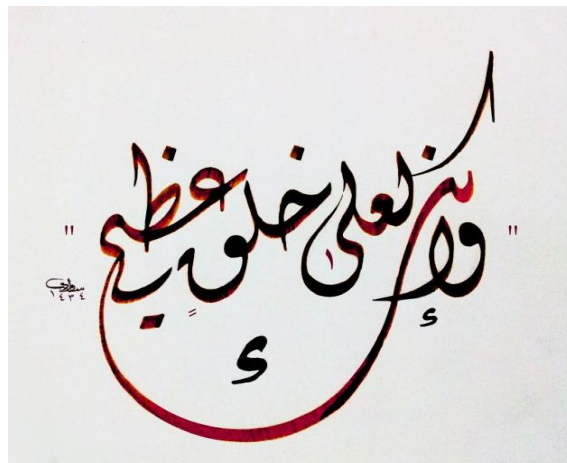 "وإنك لعلى خلق عظيم"
١٤٣٤